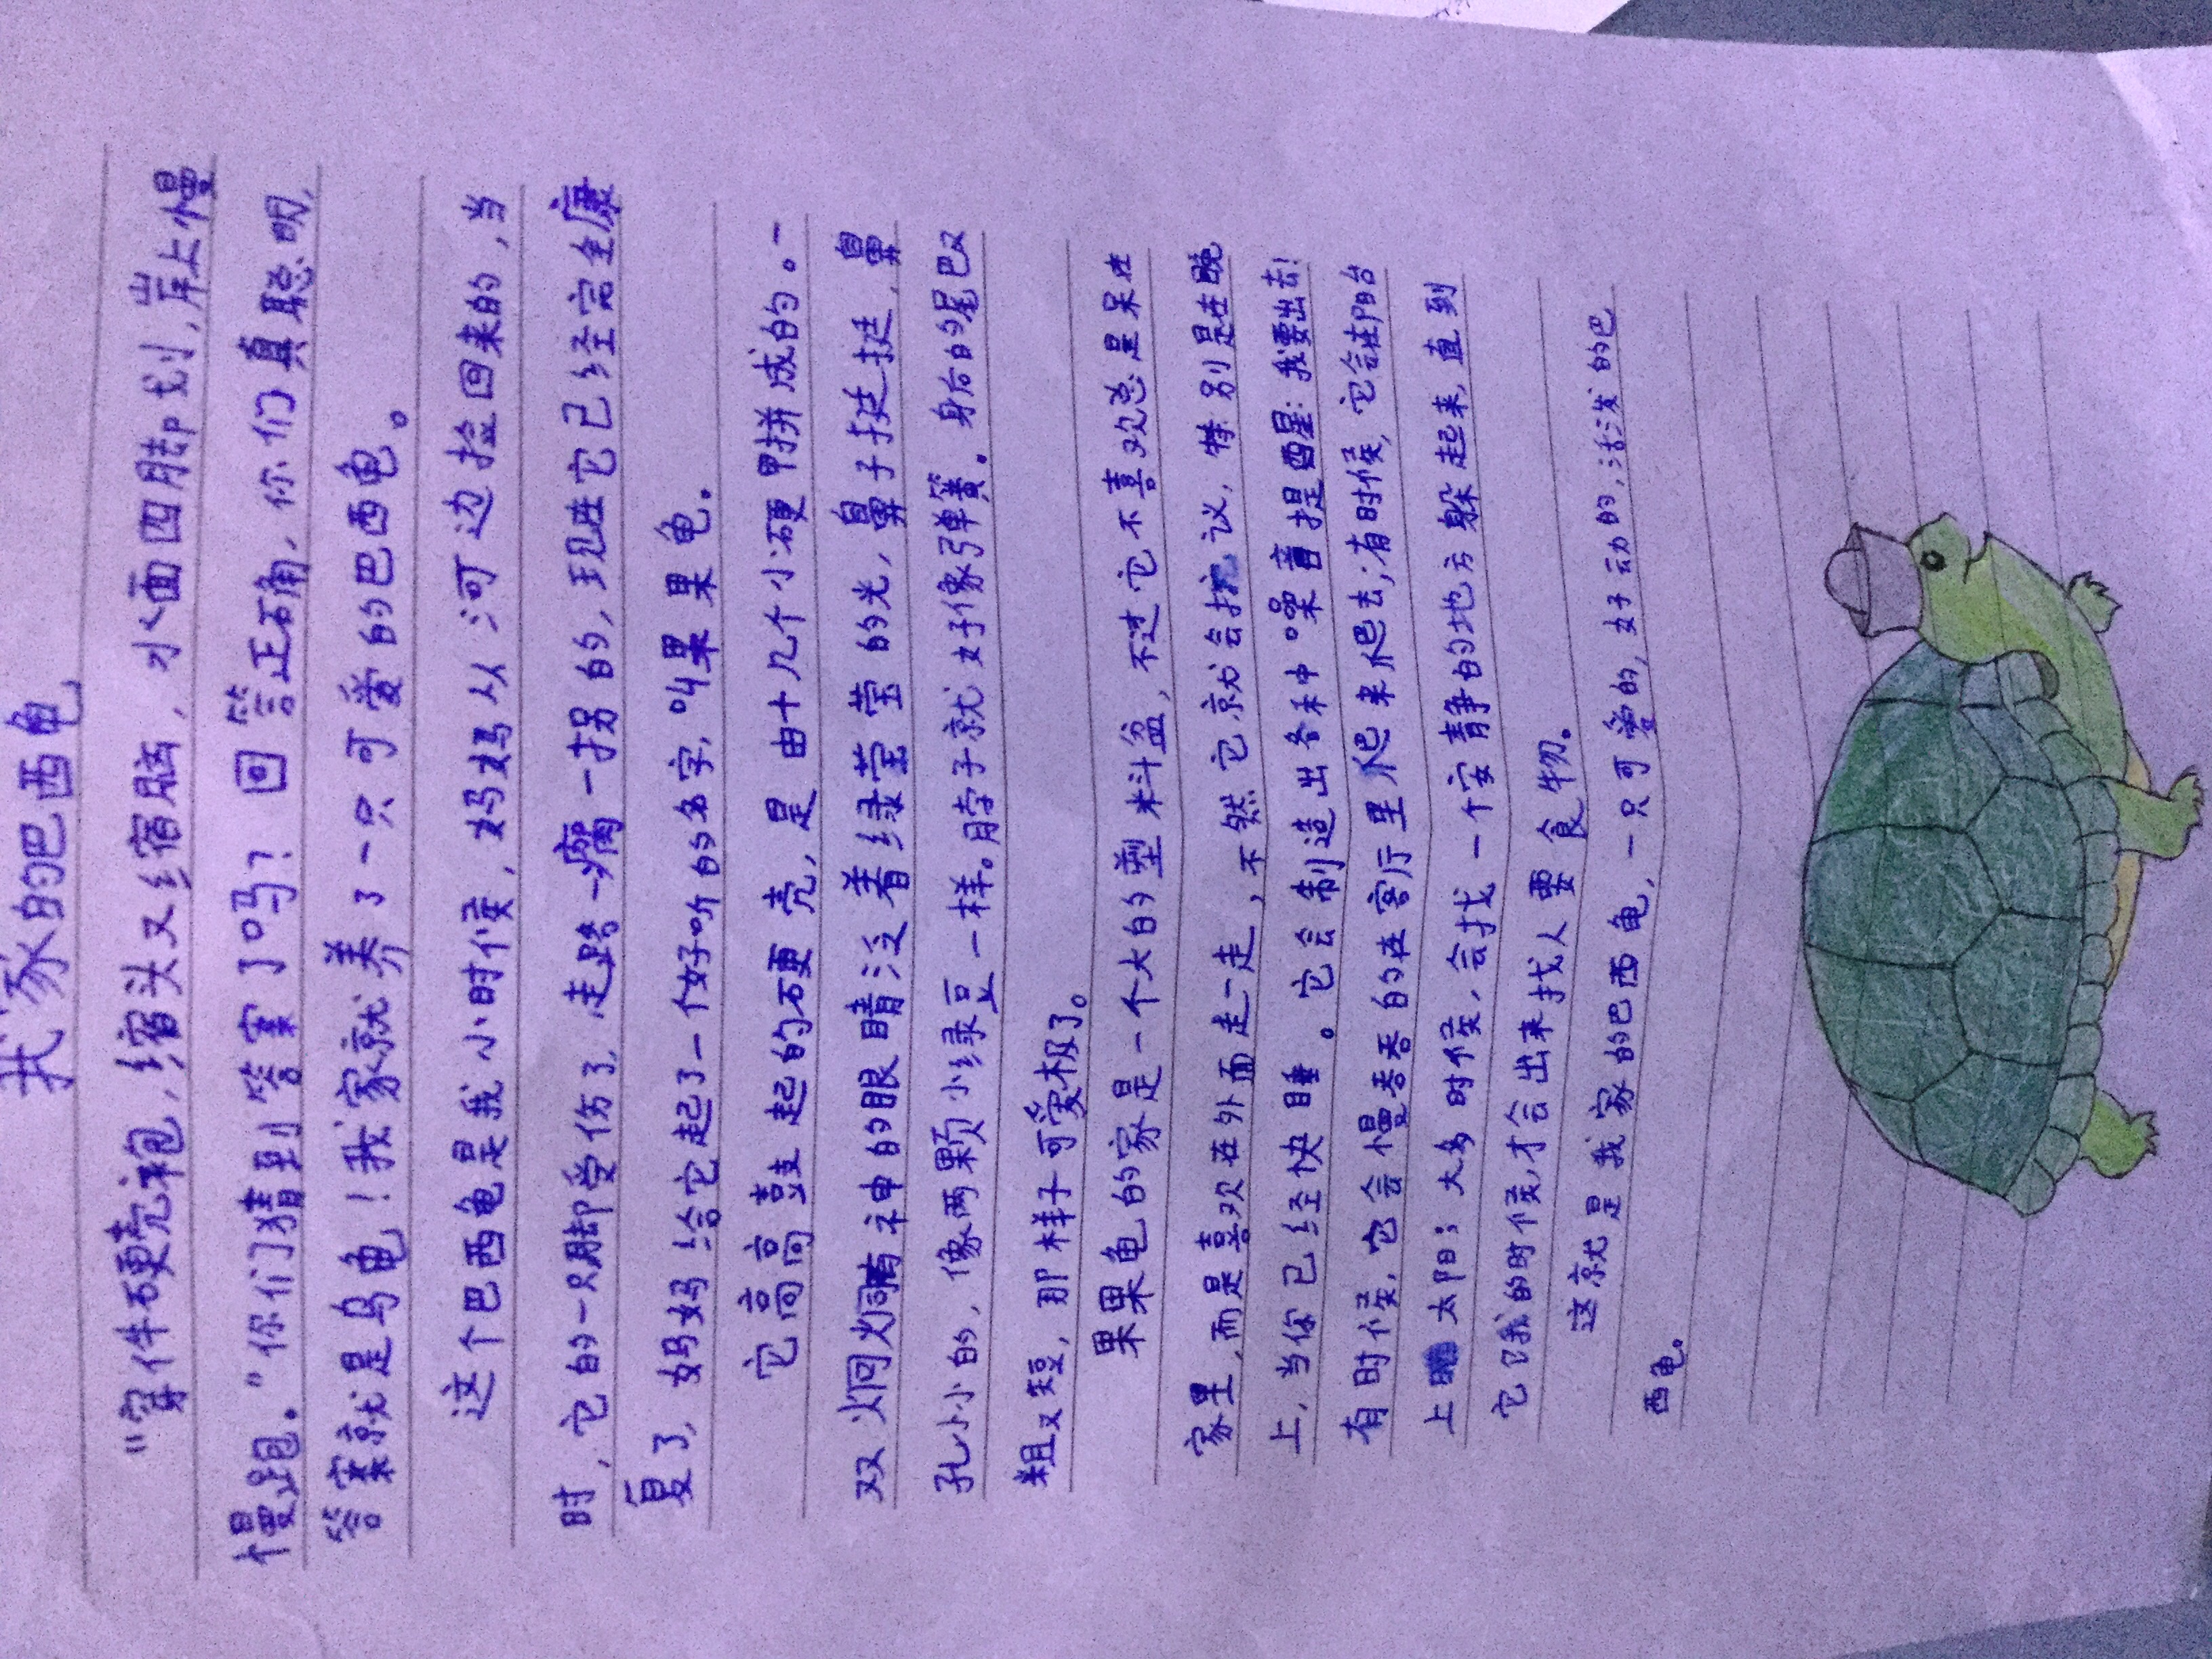 我家的巴西龟
"穿件硬壳袍,缩头又缩脑,水面四脚划,岸上慢
慢跑。"你们猜到答案了吗?回答正确,你们真聪明,
答案就是乌龟!我家就养了一只可爱的巴西龟。
这个巴西龟是我小时候,妈妈从河边捡回来的,当
时,它的一只脚受伤了,走路一瘸一拐的,现在它已经完全康
复了,妈妈给它起了一个好听的名字,叫果果龟。
它高高鼓起的硬壳,是由十几个小硬甲拼成的。一
双炯炯有神的眼睛泛着绿莹莹的光,鼻子挺挺,鼻
孔小小的,像两颗小绿豆一样。脖子就好像弹簧。身后的尾巴又
粗又短,那样子可爱极了。
果果龟的家是一个大的塑料盆,不过它不喜欢总是呆在
家里,而是喜欢在外面走一走,不然它就会抗议,特别是在晚
上,当你已经快睡。它会制造出各种噪音提醒:我要出去!
有时候,它会慢吞吞的在客厅里爬来爬去;有时候,它会在阳台
上晒太阳;大多时候,会找一个安静的地方躲起来,直到
它饿的时候,才会出来找人要食物。
这就是我家的巴西龟,一只可爱的,好动的,活泼的巴
西龟。